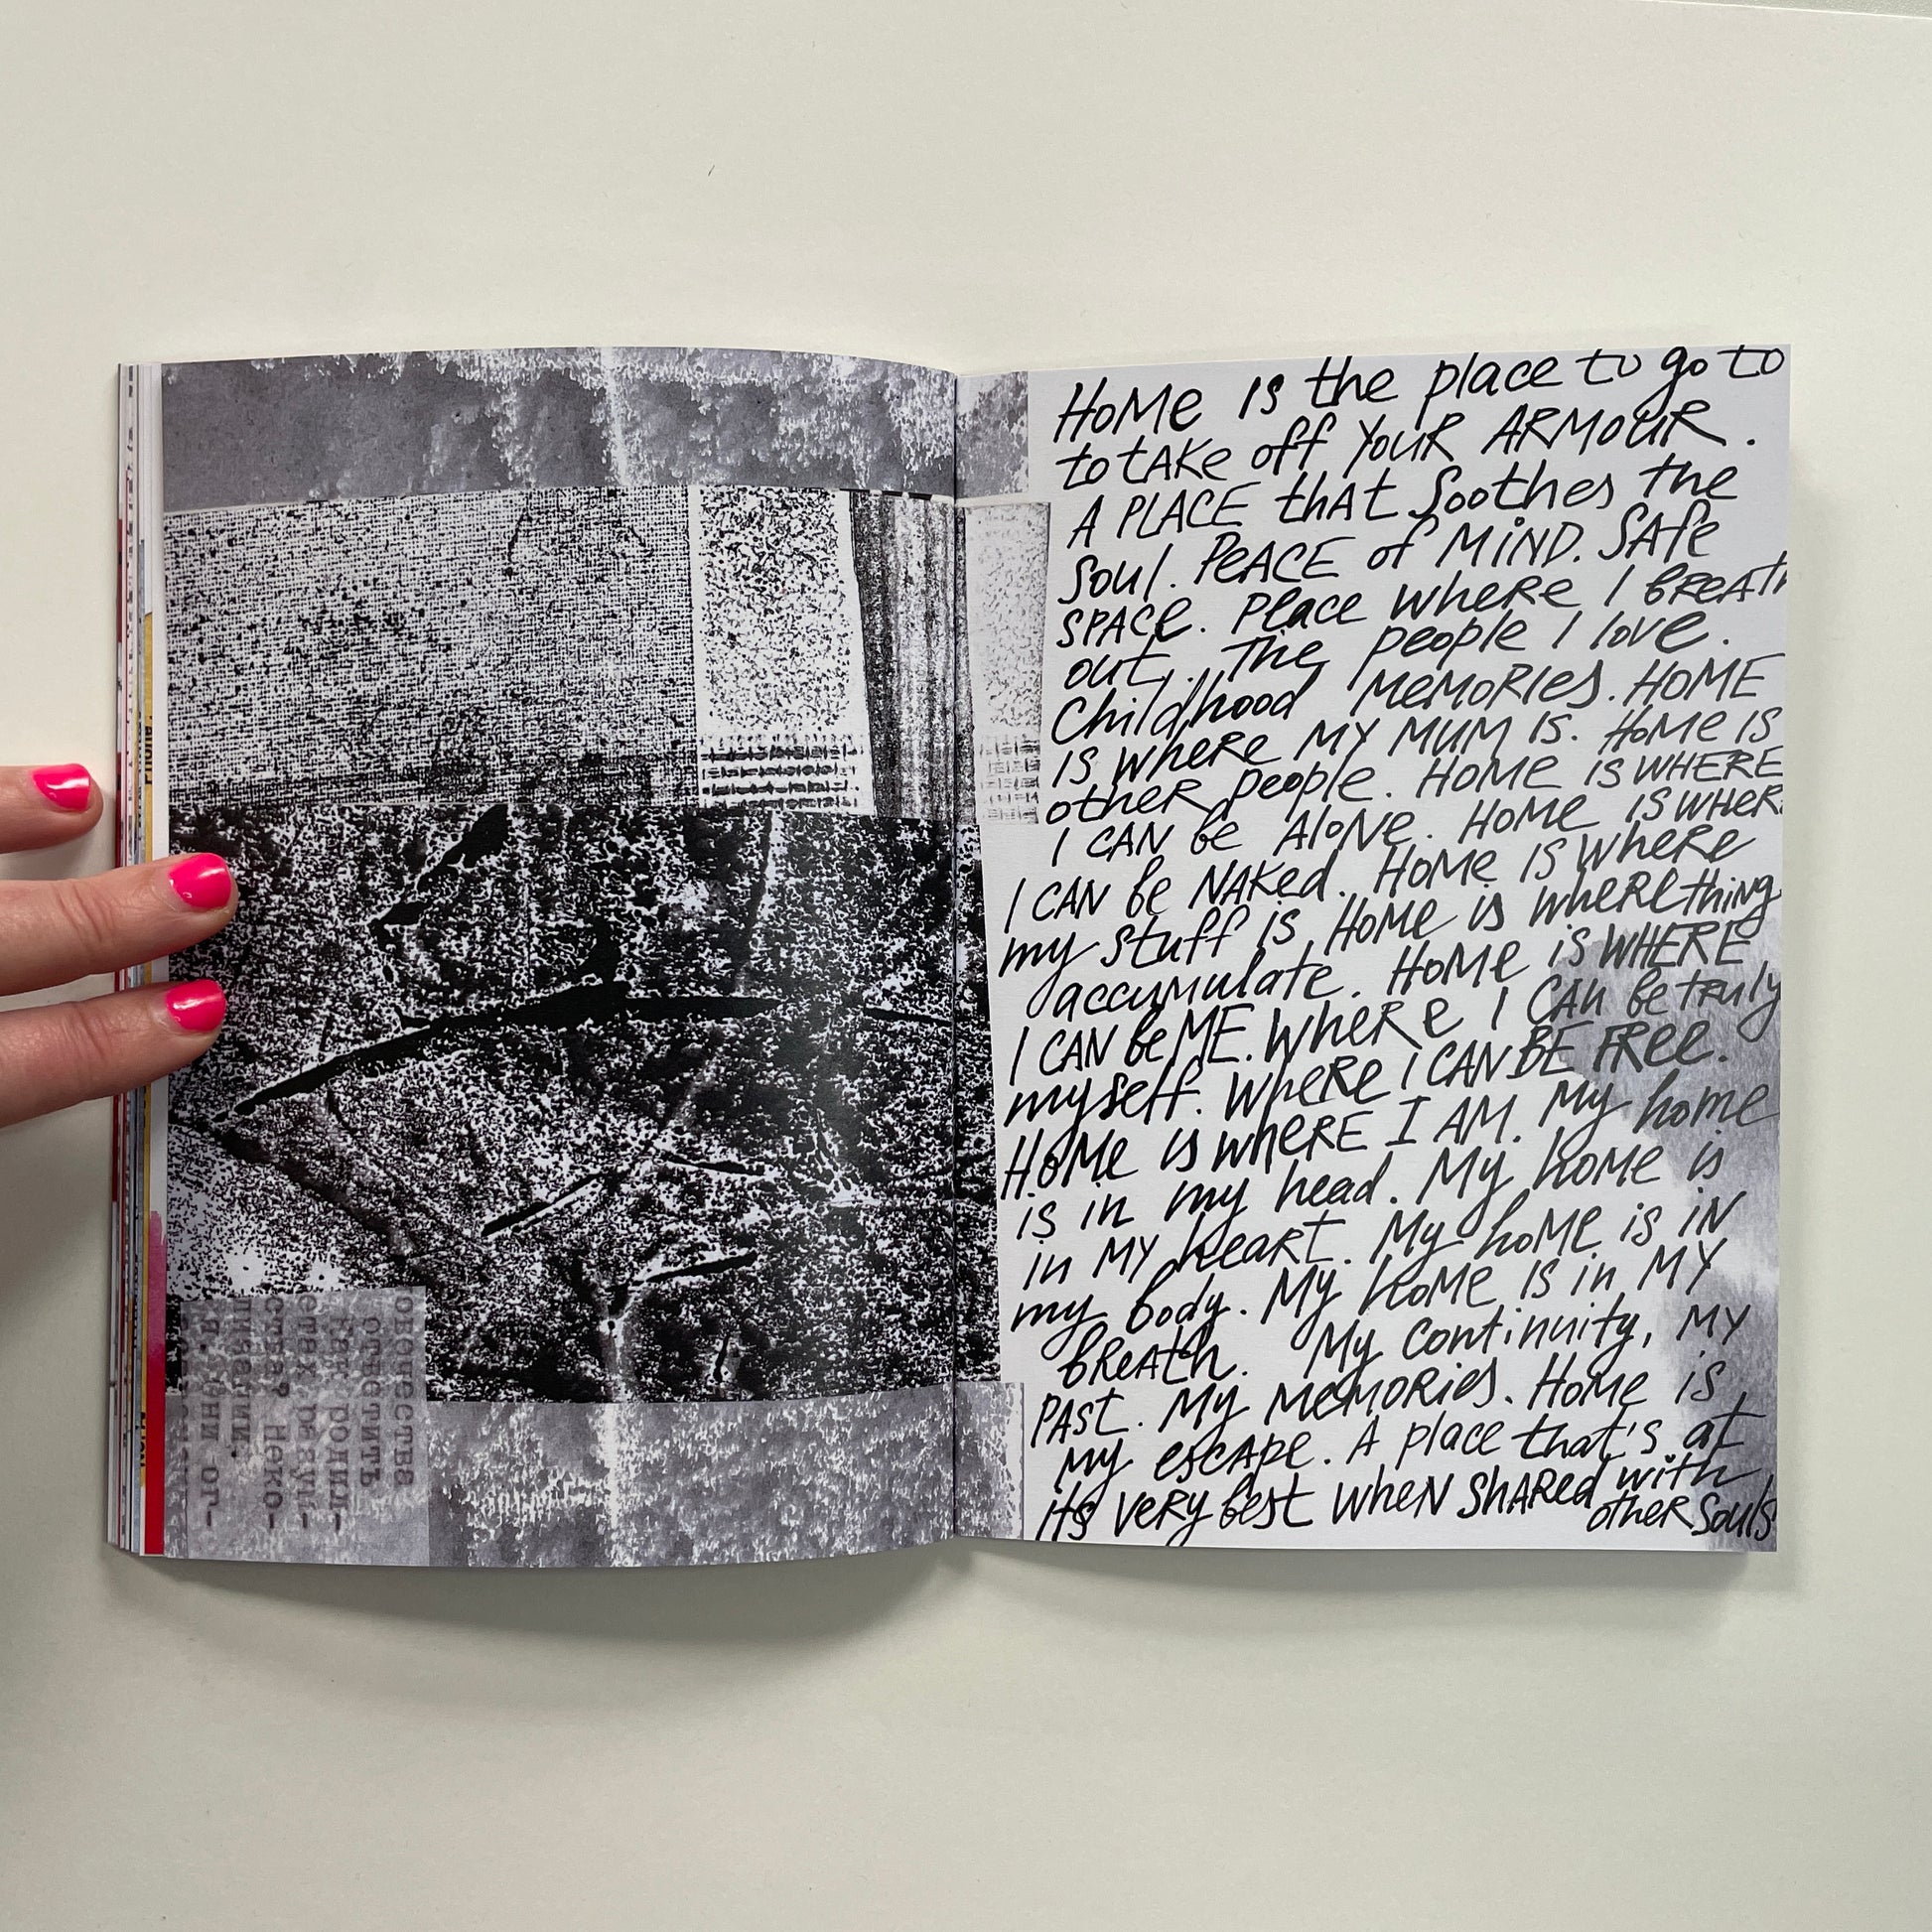 общества
отпустить
пиваыми.
Неко-
ог-
HOME IS the place to go to
to tAKe off YOUR ARMOUR.
A PLACE thAt Soothes the
Soul. PeACE of MiND. SAfe
SPACe. Place where I BREATH
out. The people I love.
Childhood MeMORies. HOME
IS where MY MUM IS. HoMe IS
otheR people. HOMe iS WHERE
I CAN be AloNe. HoMe IS WHERE
I CAN be NAKed. HoMe IS where
my stuff is HoMe is wheRe thing
accumulate. HoMe iS WHERE
I CAN be ME. Where I CAn be truly
myself. Where I CAN BE FRee.
HoMe is wheRE I AM. My home
is in my head. My hoMe is
in MY heaRt. My hoMe is iN
my body. My HoMe IS in MY
bReAth. My continuity, MY
PAst. My MeMORies. HoMe is
my escApe. A place that's at
its veRy best wheN ShARed with
otheR Souls